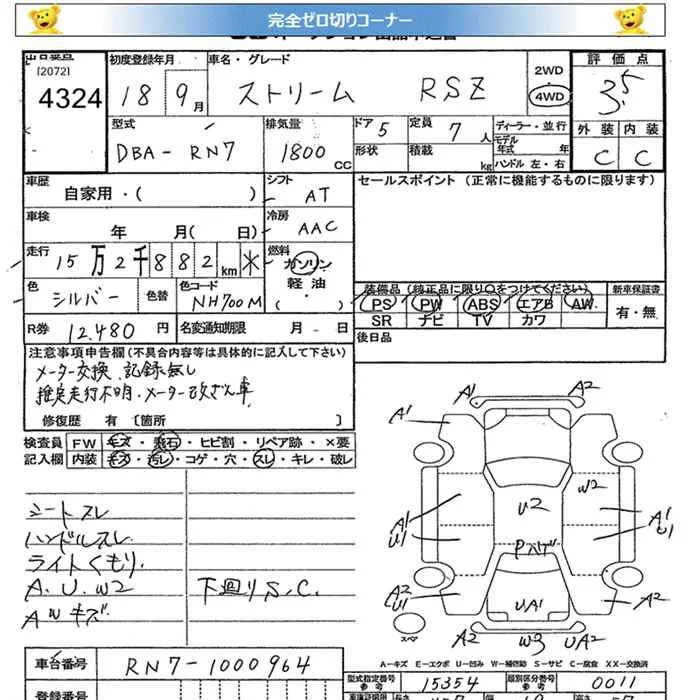 完全ゼロ切りコーナー
出品番号 初度登録年月 車名・グレード 評価点
[2072]
4324 18 9月 ストリーム RSZ 2WD 4WD 3.5
型式 排気量 ドア 5 定員 7人 ディーラー・並行 外装 内装
DBA-RN7 1800cc 形状 積載 kg モデル年式 年 ハンドル 左・右 C C
車歴 自家用・( ) シフト AT セールスポイント (正常に機能するものに限ります)
車検 年 月( 日) 冷房 AAC
走行 15万2千882km ＊ 燃料 ガソリン
軽油
・
( )
色 シルバー 色替 色コード NH700M 装備品(純正品に限り○をつけてください) 新車保証書
PS PW ABS エアB AW 有・無
SR ナビ TV カワ
R券 12,480円 名変通知期限 月 - 日 後日品
注意事項申告欄(不具合内容等は具体的に記入して下さい)
メーター交換 記録無し
推定走行不明・メーター改ざん車
修復歴 有 〔箇所 〕
検査員記入欄 FW キズ・飛石・ヒビ割・リペア跡・×要
内装 キズ・汚レ・コゲ・穴・スレ・キレ・破レ
シートスレ
ハンドルスレ
ライトくもり.
A.U.W2 下廻りS.C.
AWキズ
A1 A2
A1 A2
W2
U2
A1 U1 A1 U1
Pハゲ
A2 U1 UA1 A2
スペ A2 W3 UA2
A-キズ E-エクボ U-凹み W-補修跡 S-サビ C-腐食 XX-交換済
車台番号 RN7-1000964
型式指定番号 参考 15354 類別区分番号 参考 0011
登録番号